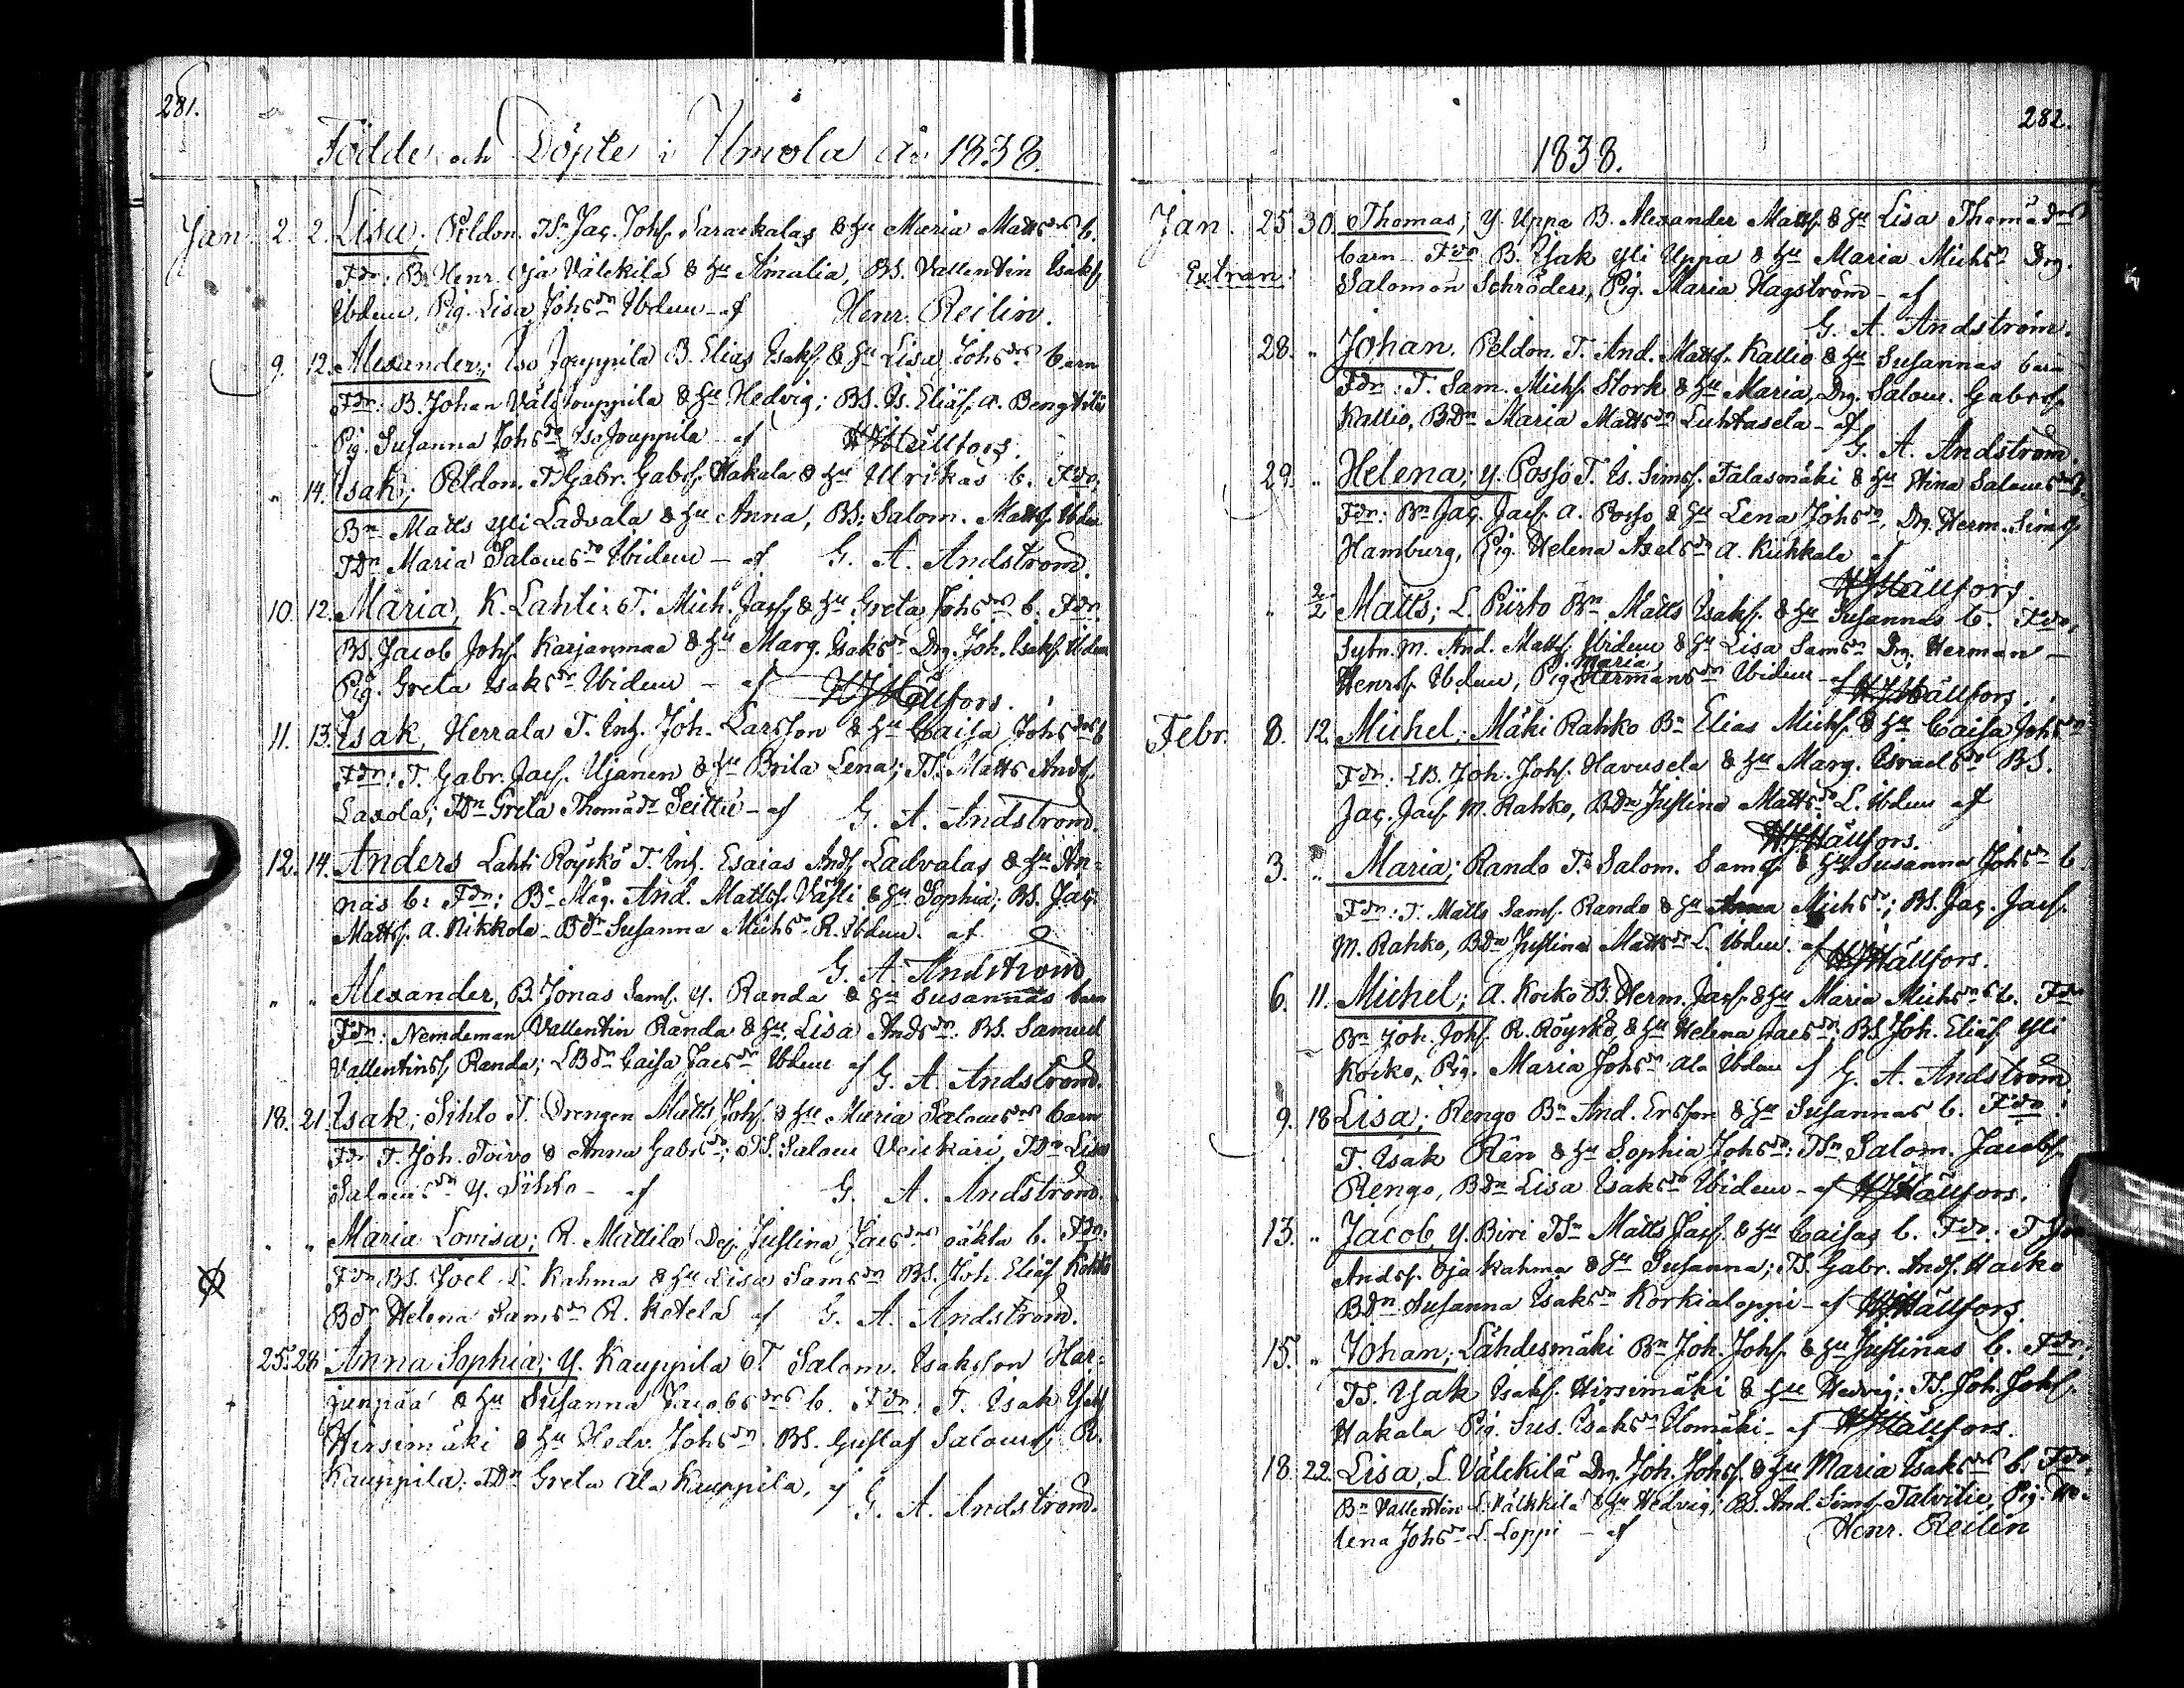 281.
Födde och Döpte i Ulmola År 1838.
Jan 2. 2. Lisa; Peldon. TSn Jac. Johss. Sarackalas & Hu Maria Mattsdrs b.
Fdr: Bn Henr. Oja Välckilä & Hu Amalia, BS. Vallentin Isakss.
Ibdem, Pig. Lisa Johsdr Ibdem - af Henr. Reilin.
9. 12. Alexander; Iso Jouppila B. Elias Isakss. & Hu Lisa Johsdrs barn
Fdr: B. Johan Väljouppila & Hu Hedvig; BS. Is. Eliass. A.
Pig. Susanna Johsdr Iso Jouppila af HJHällfors.
" 14. Isak; Peldon. T. Gabr. Gabrss. Hakala & Hu Ulrikas b. Fdr;
Bn Matts Yli Ladvala & Hu Anna, BS: Salom. Mattss. Ibdm
TDn Maria Salomsdr Ibidem - af G. A. Andström.
10. 12. Maria, K. Lahti T. Mich. Jacss. & Hu Greta Johsdrs b. Fdr:
BS. Jacob Johss. Karjanmaa & Hu Marg. Isaksdr Drg. Joh. Isakss. Ibdem
Pig. Greta Isaksdr Ibidem - af HJHällfors.
11. 13. Isak, Herrala T. Inh. Joh. Larsson & Hu Caisa Johsdrs b
Fdr: T. Gabr. Jacss. Ujanen & Hu Brita Lena; TS. Matts Andss.
Laxola; TDn Greta Thomadr Seittu - af G. A. Andström.
12. 14. Anders Lahti Röyskö T. Inh. Esaias Andss. Ladvalas & Hu An=
nas b: Fdr: Bn Mag. And. Mattss. Väfli & Hu Sophia; BS. Jac.
Mattss. A. Nikkola - BDn Susanna Michsdr R. Ibdem. af
G. A. Andström
" " Alexander, B. Jonas Samss. Y. Randa & Hu Susannas barn
Fdr: Nemdeman Vallentin Randa & Hu Lisa Andsdr: BS. Samuel
Vallentinss. Randa; LBdn Caisa Jacsdr Ibdem af G. A. Andström.
18. 21. Isak; Sihto T. Drengen Matts Johss. & Hu Maria Salomsdrs barn
Fdr T. Joh. Toivo & Anna Gabrsdr; TS. Salom Veickari, TDn Lisa
Salomsdr Y. Sihto - af G. A. Andström.
" " Maria Lovisa; R. Mattila Dej. Justina Jacsdrs oäkta b. Fdr:
Fdr BS. Joel L. Rahma & Hu Lisa Samsdr BS. Joh. Eliass. Kohto
BDr Helena Samsdr R. Ketela af G. A. Andström.
25. 28 Anna Sophia; Y. Kauppila T. Salom. Isaksson Har=
junpää & Hu Susanna Jacobsdrs b. Fdr: T. Isak Isakss.
Hirsimäki & Hu Hedv. Johsdr. BS. Gustaf Salomss. R.
Kauppila. TDn Greta Ala Kauppila, af
G. A. Andström.
282.
1838.
Jan. 25. 30. Thomas; Y. Uppa B. Alexander Mattss. & Hu Lisa Thomædrs
barn Fdr B. Isak Yli Uppa & Hu Maria Michsdr Drg.
Extran: Salomon Schröder, Pig. Maria Hagström - af
G. A. Andström.
28. " Johan. Peldon. T. And. Mattss. Kallio & Hu Susannas barn
Fdr: T. Sam. Michss. Stork & Hu Maria, Drg. Salom. Gabrss.
Kallio, BDn Maria Mattsdr Luhtasela - af
G. A. Andström.
29. " Helena; Y. Posso T. Is. Simss. Talasmäki & Hu Hina Salomsdrs b.
Fdr: Bn Jac. Jacss. A. Posso & Hu Lena Johsdr, Drg. Herm. Simss.
Hamburg, Pig. Helena Axelsdr A. Kuhkala af
HJHällfors.
" 2/2 Matts; L. Piirto Bn Matts Isakss. & Hu Susannas b. Fdr,
Sytn. M. And. Mattss. Ibidem & Hu Lisa Samsdr Drg. Herman -
Henrss. Ibdem, Pig. Maria Hermansdr Ibidem - af HJHällfors.
Febr. 8. 12. Michel; Mäki Rahko Bn Elias Michss. & Hu Caisa Johsdrs
Fdr: LB. Joh. Johss. Havusela & Hu Marg. Israelsdr BS.
Jac. Jacss. M. Rahko, BDn Justina Mattsdr L. Ibdem af
HJHällfors.
3. " Maria; Rando T. Salom. Samss. & Hu Susanna Johsdr b.
Fdr: T. Matts Samss. Rando & Hu Anna Michsdr; BS. Jac. Jacss.
M. Rahko, BDn Justina Mattsdr L. Ibdem. af HJHällfors.
6. 11. Michel; A. Koiko B. Herm. Jacss. & Hu Maria Michsdrs b. Fdr
Bn Joh. Johss. R. Röyskö & Hu Helena Jacsdr; BS. Joh. Eliass. Yli
Koiko, Pig. Maria Johsdr. Ala Ibdem af G. A. Andström
9. 18 Lisa; Rengo Bn And. Ersson & Hu Susannas b. Fdr:
T. Isak Rén & Hu Sophia Johsdr: TSn Salom. Jacobss.
Rengo, BDn Lisa Isaksdr Ibidem - af HJHällfors.
13. " Jacob, Y. Biri TSn Matts Jacss. & Hu Caisas b. Fdr: T
Andss. Oja Rahma & Hu Susanna; TS. Gabr. Andss. Haiko
BDn Susanna Isaksdr Korkialoppi - af HJHällfors.
15. " Johan; Lähdesmäki Bn Joh. Johss. & Hu Justinas b. Fdr;
TS. Isak Isakss. Hirsimäki & Hu Hedvig; TS. Joh. Johss.
Hakala Pig. Sus. Isaksdr Uomäki - af HJHällfors.
18. 22. Lisa, L. Välckilä Drg. Joh. Johss. & Hu Maria Isaksdrs b. Fdr.
Bn Vallentin L. Välkkilä & Hu Hedvig; BS. And. Simss. Talvitie, Pig. He=
lena Johsdr L. Loppi - af Henr. Reilin